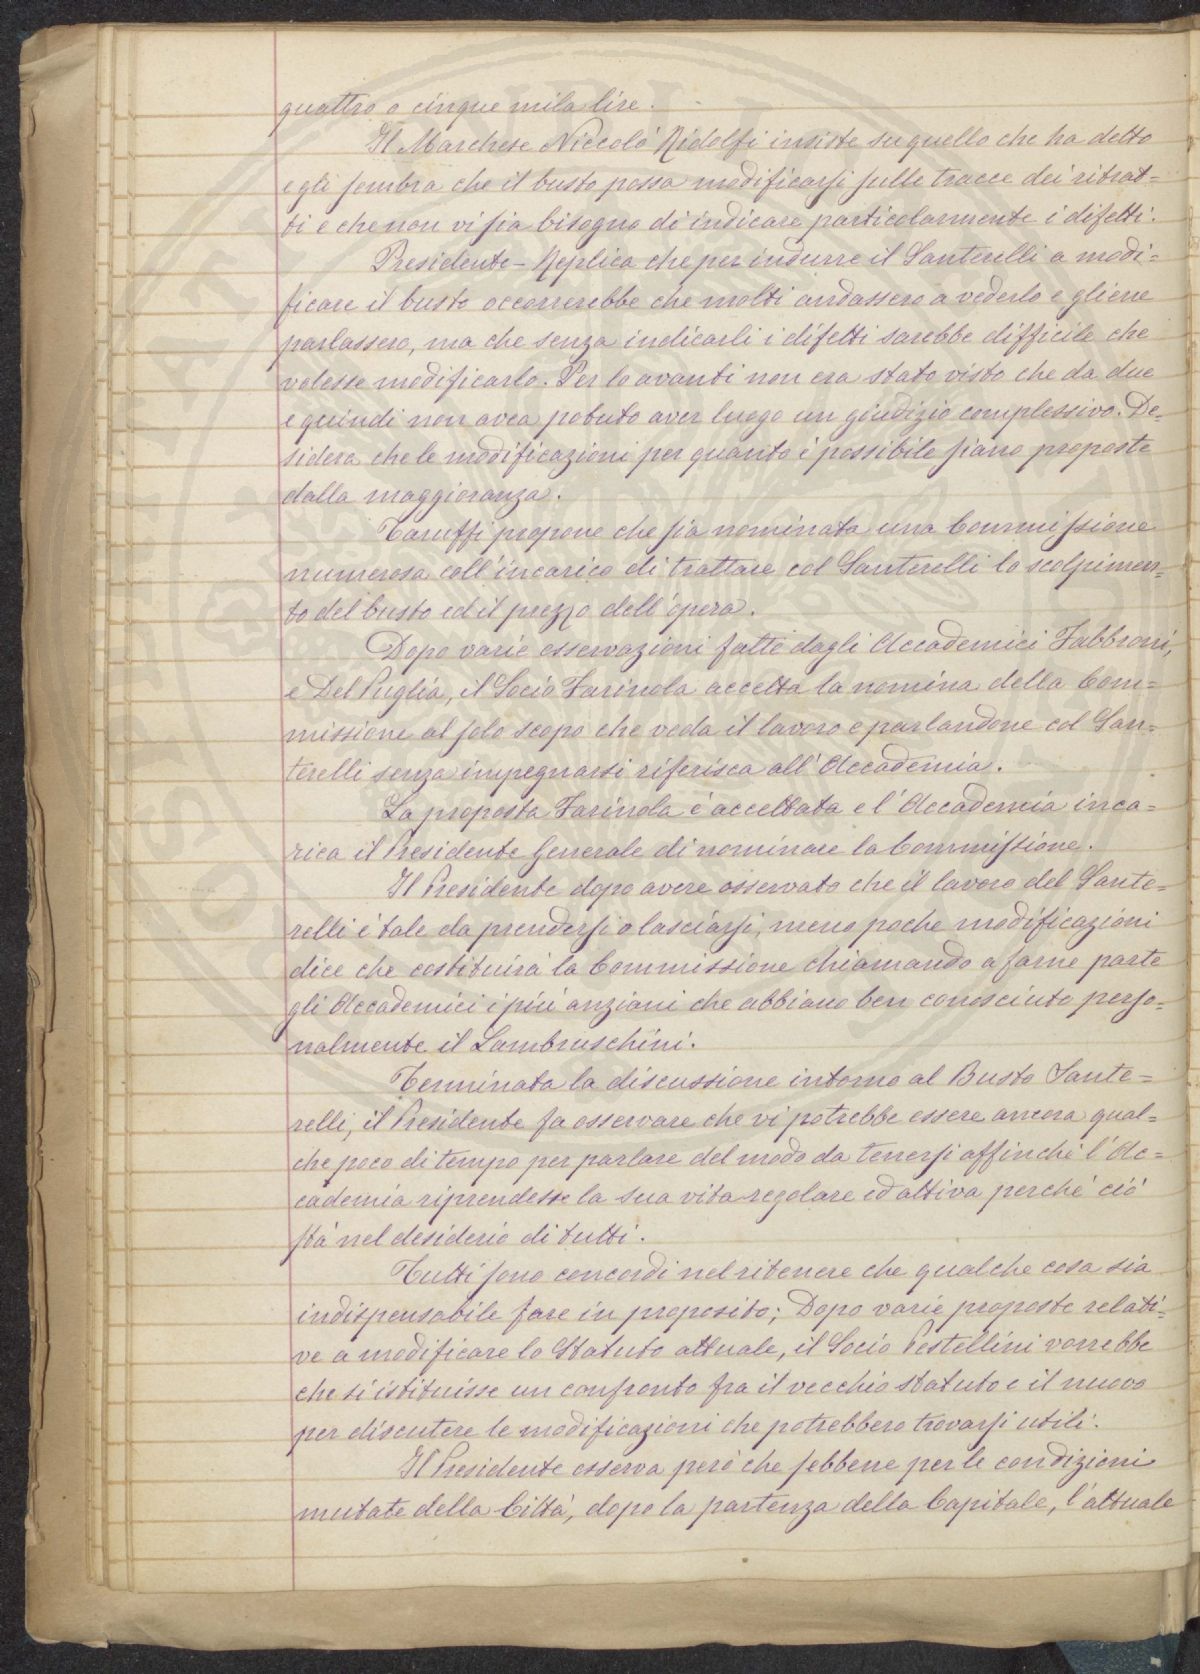 quattro o cinque mila lire.
Il Marchese Niccolò Ridolfi insiste su quello che ha detto
e gli sembra che il busto possa modificarsi sulle tracce dei ritrat=
ti e che non vi sia bisogno di indicare particolarmente i difetti.
Presidente - Replica che per indurre il Santerelli a modi=
ficare il busto occorrerebbe che molti andassero a vederlo e gliene
parlassero, ma che senza indicarli i difetti sarebbe difficile che
volesse modificarlo. Per lo avanti non era stato visto che da due
e quindi non avea potuto aver luogo un giudizio complessivo. De=
sidera che le modificazioni per quanto è possibile siano proposte
dalla maggioranza.
Taruffi propone che sia nominata una Commissione
numerosa coll'incarico di trattare col Santerelli lo scolpimen=
to del busto ed il prezzo dell'opera.
Dopo varie osservazioni fatte dagli Accademici Fabbroni,
e Del Puglia, il Socio Farinola accetta la nomina della Com=
missione al solo scopo che veda il lavoro e parlandone col San=
terelli senza impegnarsi riferisca all'Accademia.
La proposta Farinola è accettata e l'Accademia inca=
rica il Presidente Generale di nominare la Commissione.
Il Presidente dopo avere osservato che il lavoro del Sante=
relli è tale da prendersi o lasciarsi, meno poche modificazioni
dice che costituirà la Commissione chiamando a farne parte
gli Accademici i più anziani che abbiano ben conosciuto perso=
nalmente il Lambruschini.
Terminata la discussione intorno al Busto Sante=
relli, il Presidente fa osservare che vi potrebbe essere ancora qual=
che poco di tempo per parlare del modo da tenersi affinchè l'Ac=
cademia riprendesse la sua vita regolare ed attiva perchè ciò
stà nel desiderio di tutti.
Tutti sono concordi nel ritenere che qualche cosa sia
indispensabile fare in proposito; Dopo varie proposte relati=
ve a modificare lo Statuto attuale, il Socio Pestellini vorrebbe
che si istituisse un confronto fra il vecchio statuto e il nuovo
per discutere le modificazioni che potrebbero trovarsi utili.
Il Presidente osserva però che sebbene per le condizioni
mutate della Città, dopo la partenza della Capitale, l'attuale